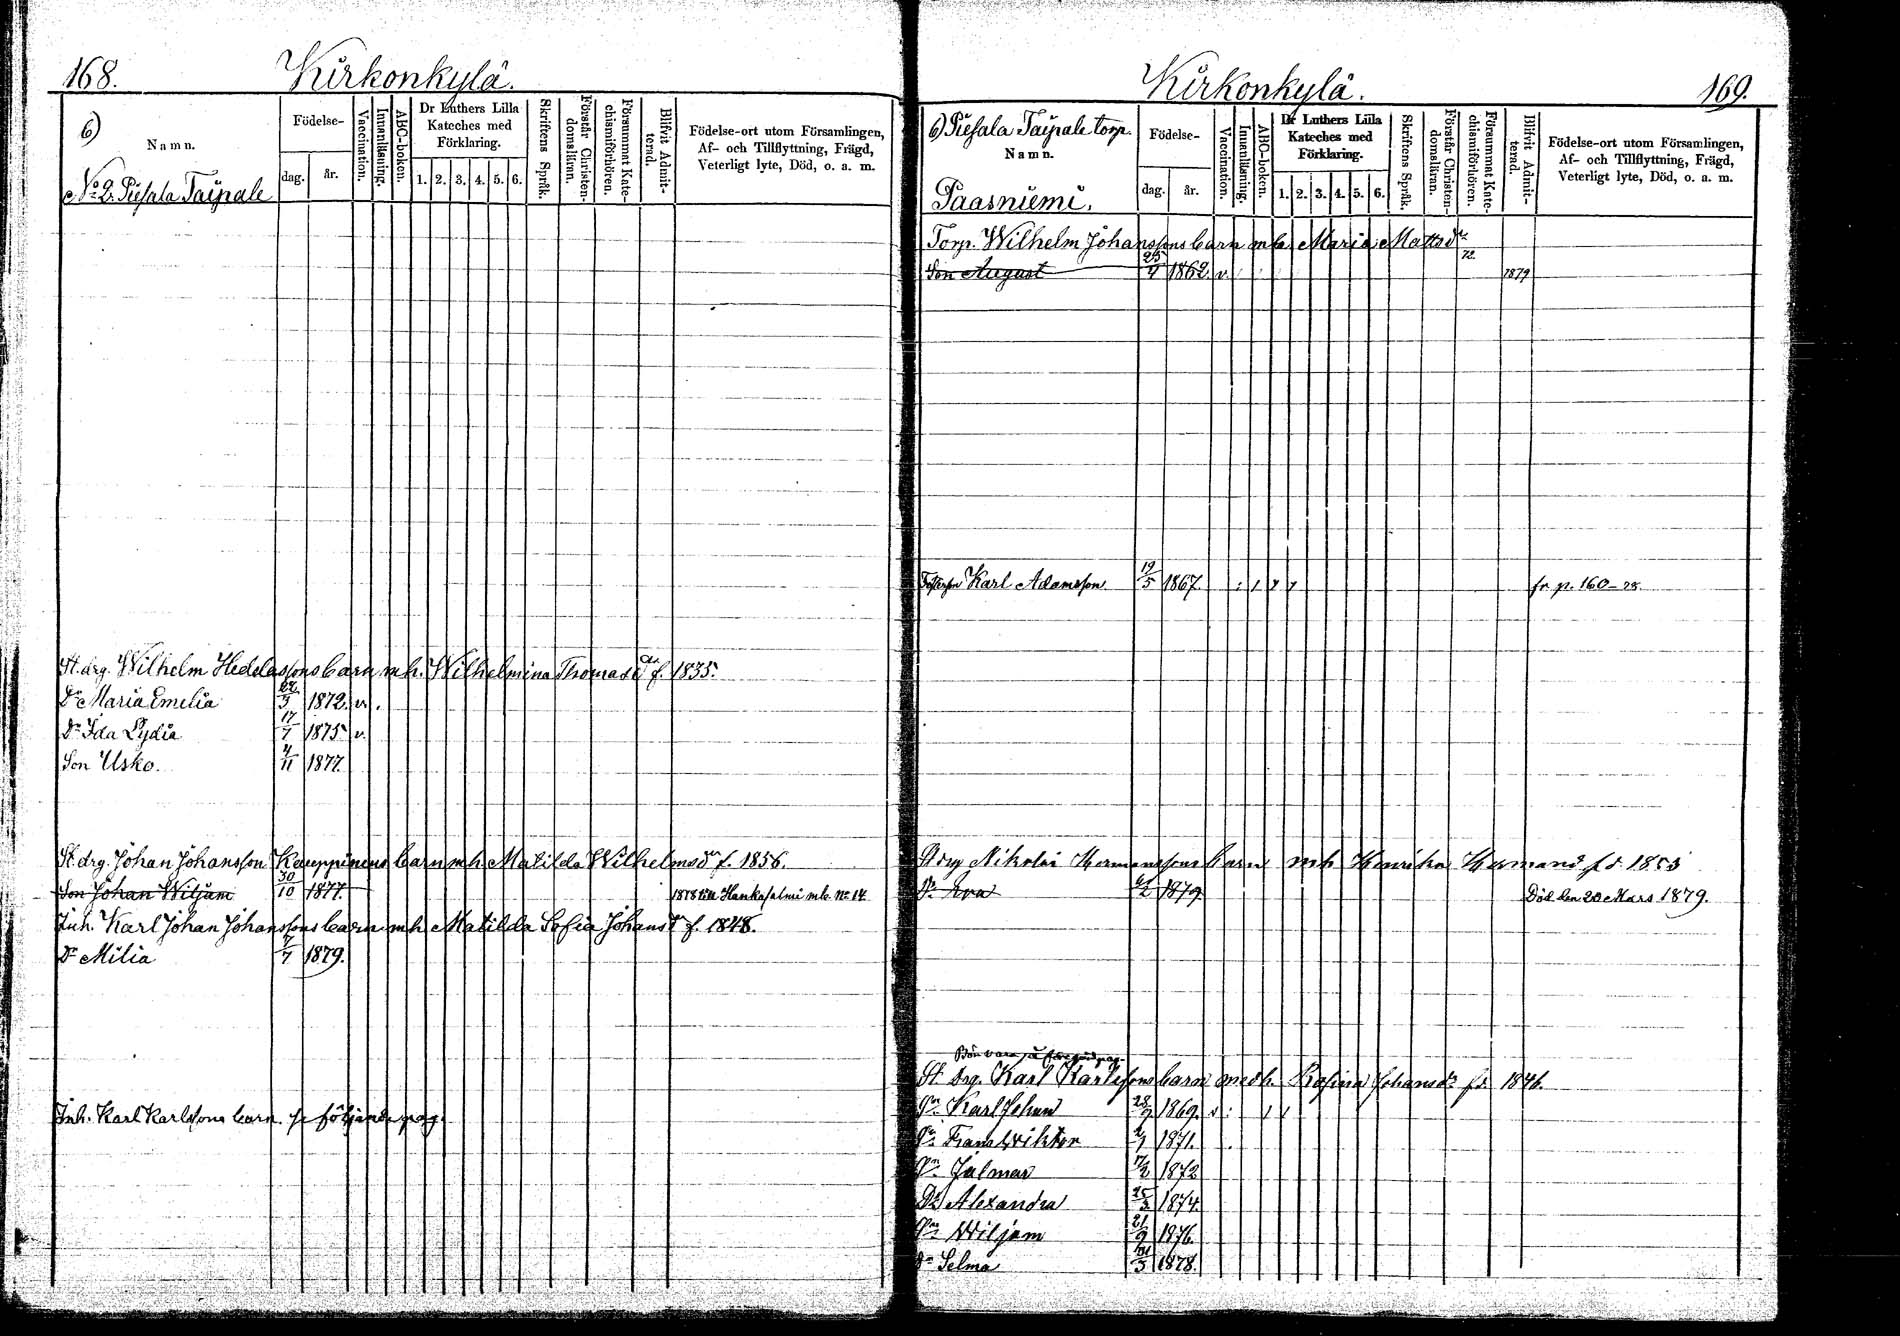 168.
Kirkonkylä.
6)
Namn.
Födelse-
dag.
år.
Vaccination.
Innanläsning.
ABC-boken.
Dr Luthers Lilla
Kateches med
Förklaring.
1. 2. 3. 4. 5. 6.
Skriftens Språk.
Förstår Christen-
domsläran.
Försummat Kate-
chismiförhören.
Blifvit Admit-
terad.
Födelse-ort utom Församlingen,
Af- och Tillflyttning, Frägd,
Veterligt lyte, Död, o. a. m.
No 2. Piesala Taipale
St. drg. Wilhelm Heddassons barn m h. Wilhelmina Thomasd. f. 1835.
Dr Maria Emelia 22/5 1872. v.
Dr Ida Lydia 17/7 1875 v.
Son Usko. 4/11 1877.
St. drg. Johan Johansson Kauppinens barn m h Matilda Wilhelmsdr f. 1856.
Son Johan Wiljam 30/10 1877. 1878 till Hankasalmi mb. No 14
Inh. Karl Johan Johanssons barn m h Matilda Sofia Johansdr f. 1848.
Dr Milia 7/7 1879.
Inh. Karl Karlssons barn se följande pag.
Kirkonkylä.
169.
6) Piesala Taipale torp.
Namn.
Paasniemi.
Födelse-
dag.
år.
Vaccination.
Innanläsning.
ABC-boken.
Dr Luthers Lilla
Kateches med
Förklaring.
1. 2. 3. 4. 5. 6.
Skriftens Språk.
Förstår Christen-
domsläran.
Försummat Kate-
chismiförhören.
Blifvit Admit-
terad.
Födelse-ort utom Församlingen,
Af- och Tillflyttning, Frägd,
Veterligt lyte, Död, o. a. m.
Torp. Wilhelm Johanssons barn m h Maria Mattsdr
Son August 25/4 1862. v. 72. 1879
Fosterson Karl Adamsson 19/5 1867. fr. p. 160-78.
St drg Nikolai Hermanssons barn mh Henrika Hermansd. fd. 1853
Dr Eva 1879 Död den 20 Mars 1879.
St. Drg. Karl Karlssons barn med h. Rosina Johansdr fd 1846.
Sn Karl Johan 28/9 1869. v.
Sn Frans Wiktor 1871.
Sn Jalmar 17/2 1872
Dr Alexandra 25/3 1874.
Sn Wiljam 21/9 1876.
Dr Selma 1878.